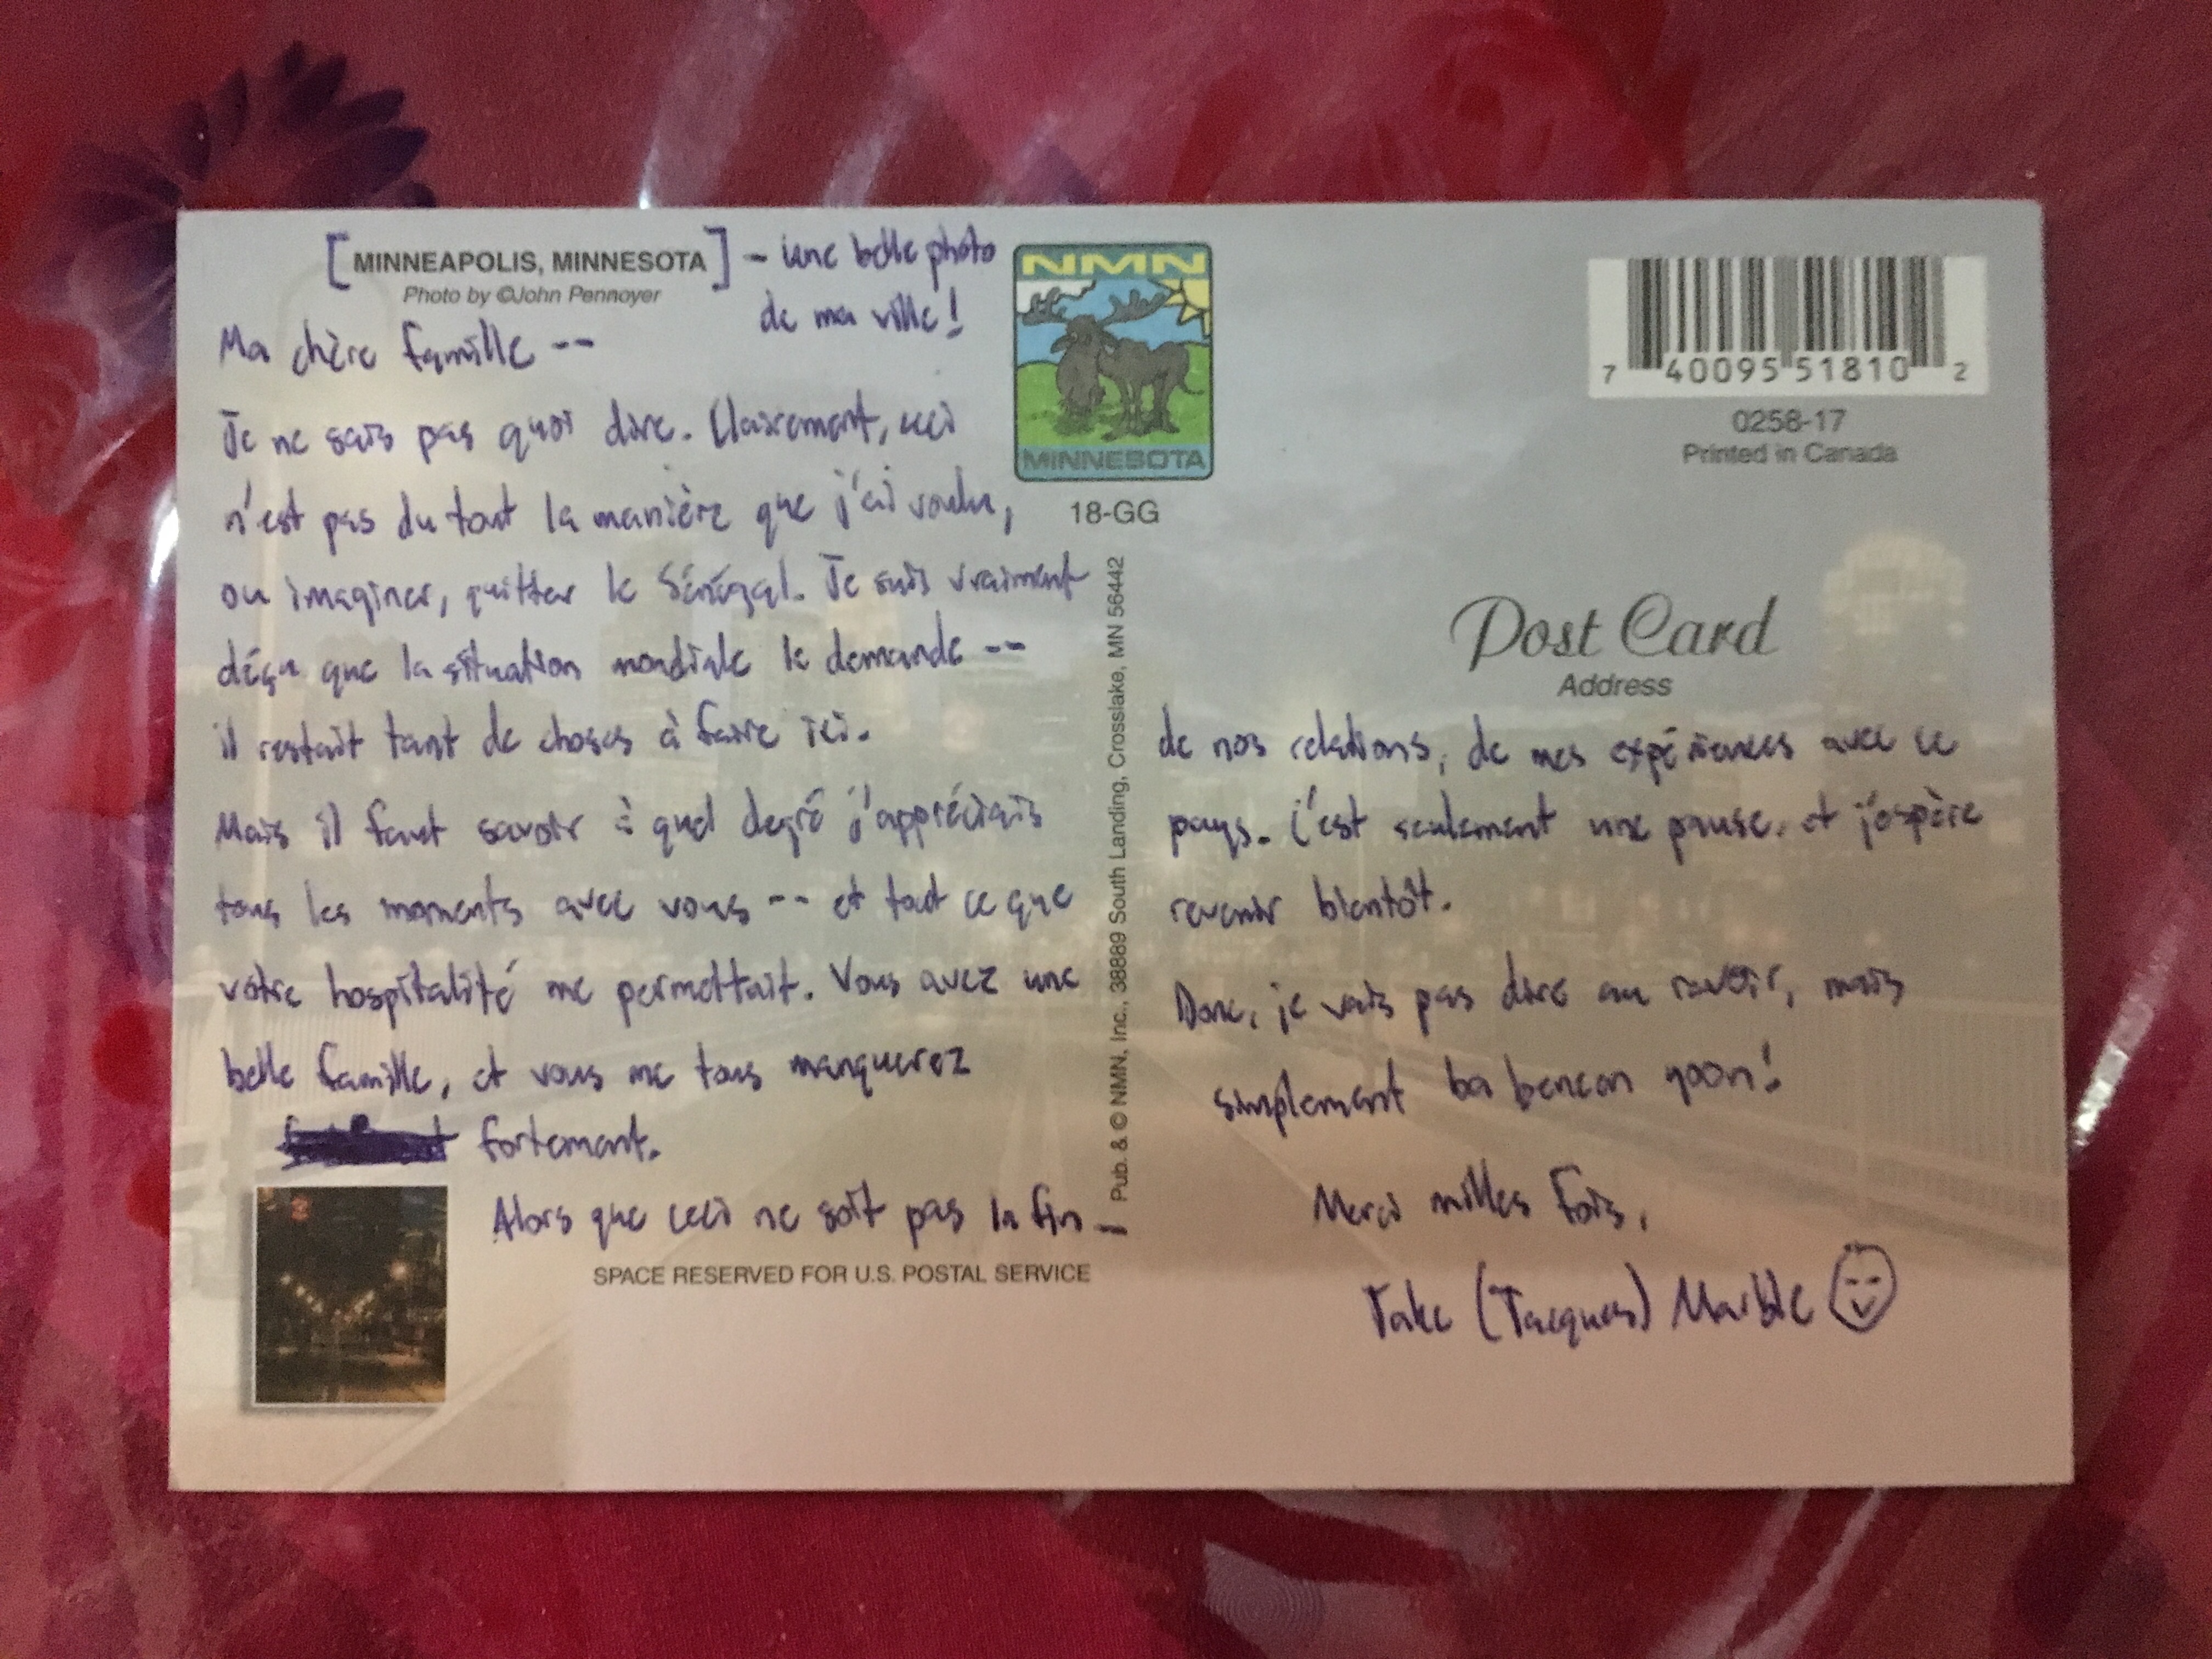 [MINNEAPOLIS, MINNESOTA] - une belle photo
Photo by ©John Pennoyer
de ma ville!
Ma chère famille --
Je ne sais pas quoi dire. Clairement, ceci
n'est pas du tout la manière que j'ai voulu,
ou imaginer, quitter le Sénégal. Je suis vraiment
déçu que la situation mondiale le demande --
il restait tant de choses à faire ici.
Mais il faut savoir à quel degré j'appréciais
tous les moments avec vous -- et tout ce que
votre hospitalité me permettait. Vous avez une
belle famille, et vous me tous manquerez
fortement.
Alors que ceci ne soit pas la fin -
SPACE RESERVED FOR U.S. POSTAL SERVICE
NMN
MINNESOTA
18-GG
Pub. & © NMN, Inc., 38889 South Landing, Crosslake, MN 56442
7 40095 51810 2
0258-17
Printed in Canada
Post Card
Address
de nos relations, de mes expériences avec ce
pays. C'est seulement une pause, et j'espère
revenir bientôt.
Donc, je vais pas dire au revoir, mais
simplement ba beneen yoon!
Merci milles fois,
Jake (Jacques) Marble